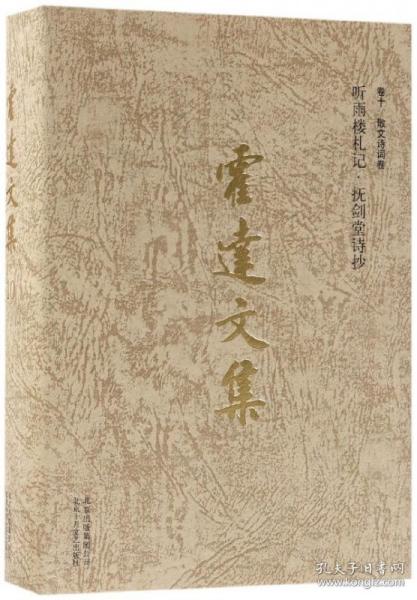 卷十 散文诗词卷
听雨楼札记 抚剑堂诗抄
霍達文集
霍達文集
北京出版集团公司
北京十月文艺出版社
孔夫子旧书网